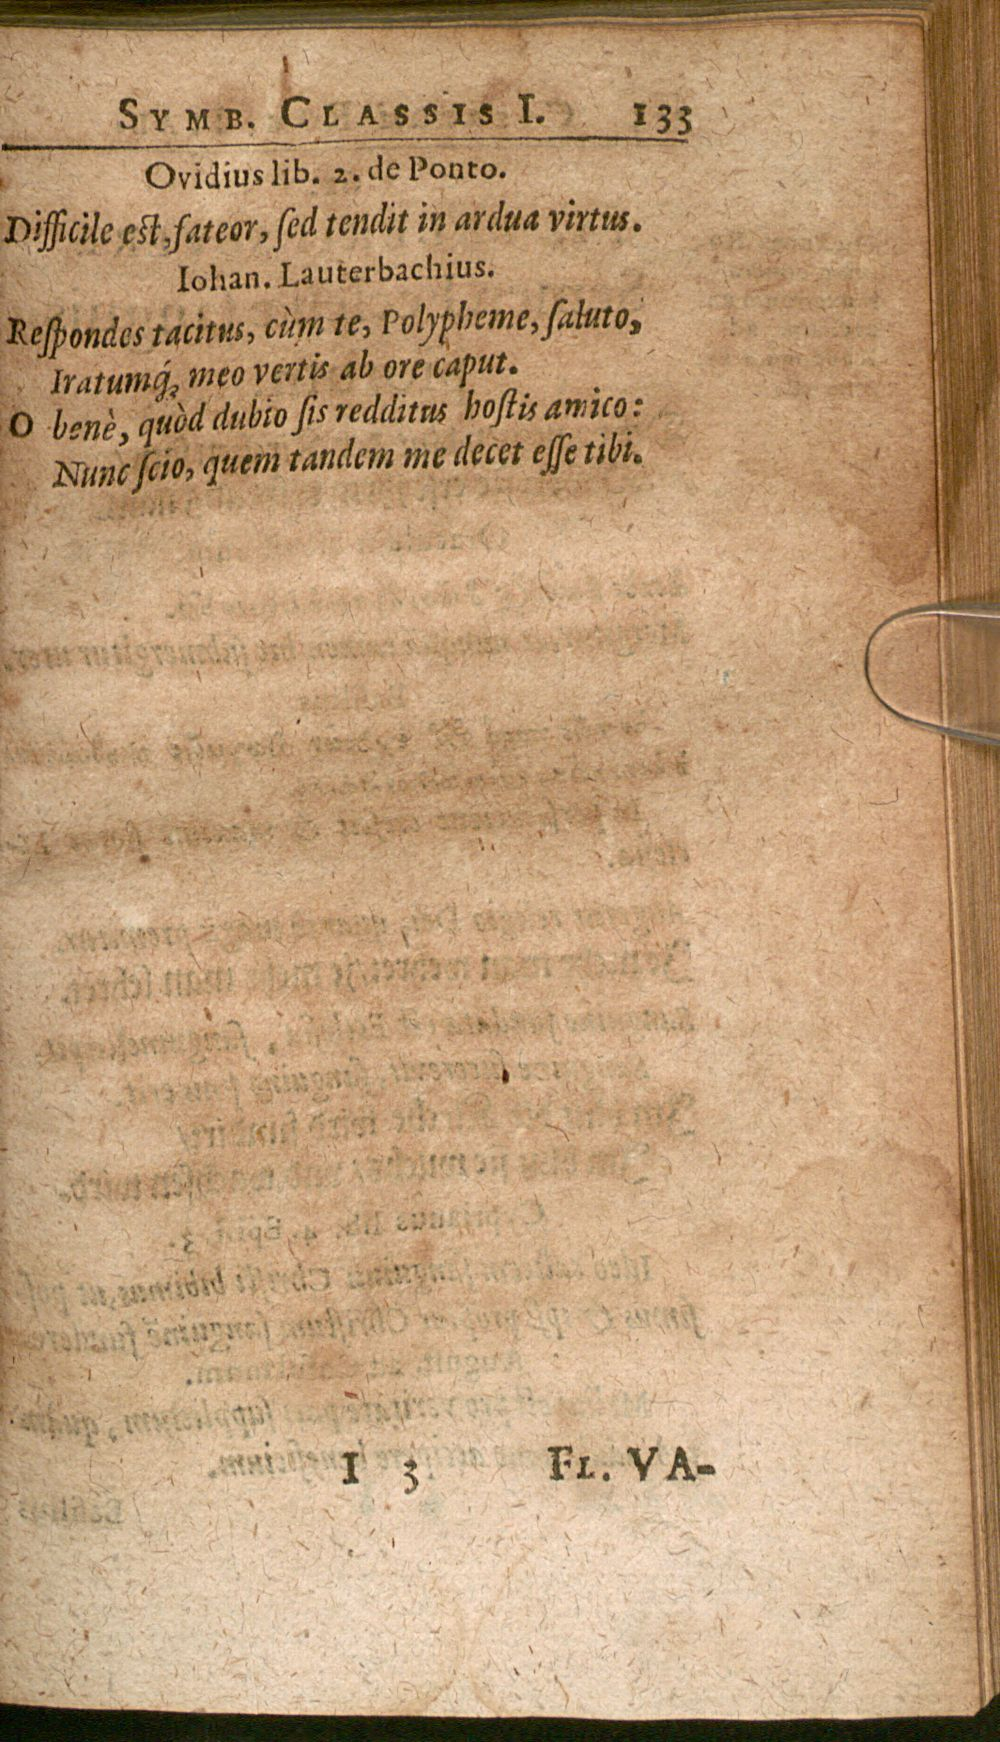 SYMB. CLASSIS I. 133
Ovidius lib. 2. de Ponto.
Difficile est, fateor, ſed tendit in ardua virtus.
Iohan. Lauterbachius.
Reſpondes tacitus, cùm te, Polypheme, ſaluto,
Iratumq́; meo vertis ab ore caput.
O benè, quòd dubio ſis redditus hoſtis amico:
Nunc ſcio, quem tandem me decet eſſe tibi.
I 3 FL. VA-